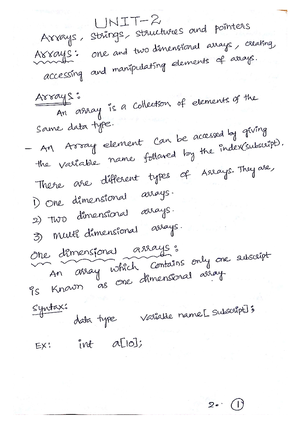 UNIT-2
Arrays, strings, structures and pointers
Arrays: one and two dimensional arrays, creating,
accessing and manipulating elements of arays.
Arrays:
An array is a collection of elements of the
same data type.
- An Array element can be accessed by giving
the variable name followed by the index(subscript).
There are different types of Arrays. They are,
1) One dimensional arrays.
2) Two dimensional arrays.
3) Multi dimensional arrays.
One dimensional arrays:
An array which contains only one subscript
is known as one dimensional array.
Syntax:
data type variable name[subscript];
Ex: int a[10];
2. 1